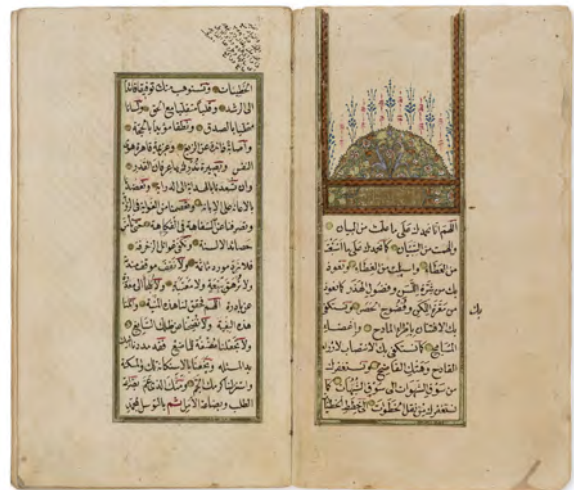 اللهم انا نحمدك على ما علمت من البيان
والهمت من التبيان كما نحمدك على ما اسبغت
من العطاء واسبلت من الغطاء ونعوذ
بك من شرة اللسن وفضول الهذر كما نعوذ
بك
من معرة اللكن وفضوح الحصر ونستكفى
بك الافتتان باطراء المادح واغضاء
المسامح كما نستكفى بك الانتصاب لازراء
القادح وهتك الفاضح ونستغفرك
من سوق الشهوات الى سوق الشبهات كما
نستغفرك من نقل الخطوات الى خطط الخطيئات
الخطيئات ونستوهب منك توفيقا قائدا
الى الرشد وقلبا متقلبا مع الحق ولسانا
متحليا بالصدق ونطقا مؤيدا بالحجة
واصابة ذائدة عن الزيغ وعزيمة قاهرة هوى
النفس وبصيرة ندرك بها عرفان القدر
وان تسعدنا بالهداية الى الدراية وتعضدنا
بالاعانة على الابانة وتعصمنا من الغواية فى الرواية
وتصرفنا عن السفاهة فى الفكاهة حتى نأمن
حصائد الالسنة ونكفى غوائل الزخرفة
فلا نرد مورد مأثمة ولا نقف موقف مندمة
ولا نرهق بتبعة ولا معتبة ولا نلجأ الى معذرة
عن بادرة اللهم فحقق لنا هذه المنية وانلنا
هذه البغية ولا تضحنا عن ظلك السابغ
ولا تجعلنا مضغة للماضغ فقد مددنا اليك
يد المسئلة وبخعنا بالاستكانة لك والمسكنة
واستنزلنا كرمك الجم ومنك الذى عم بضراعة
الطلب وبضاعة الامل ثم بالتوسل بمحمد